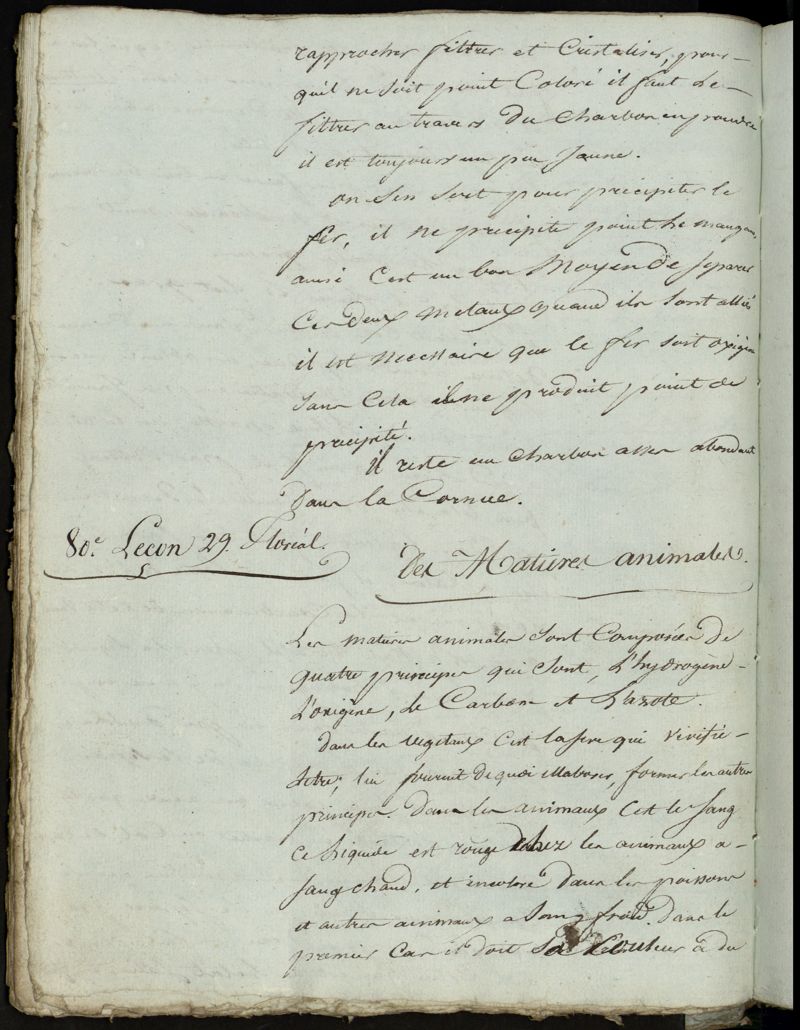 rapprocher filtrer et Cristaliser, pour-
quil ne soit point Coloré il faut le-
filtrer au travers du charbon en poudre
il est toujours un peu Jaune.
on sen sert pour précipiter le
fer, il ne précipite point le mangan.
aussi C'est un bon Moyen de separer
Ces deux metaux quand ils sont alliés
il est necessaire que le fer soit oxigéné
sans Cela il ne produit point de
précipité.
il reste un charbon assez abondant
dans la Cornue.
80.e Lecon 29. Floréal.
Des Matières animales.
Les matieres animales sont Composées de
quatre principes qui sont, L'hydrogène-
L'oxigène, le Carbone et L'azote.
dans les vegetaux c'est la seve qui vivifie-
letre, lui fournit de quoi ellaborer, former les autres
principes. dans les animaux c'est le sang
ce liquide est rouge chez les animaux a-
sang chaud, et incolore dans les poissons
et autres animaux a sang froid. dans le
premier cas il doit sa couleur à du